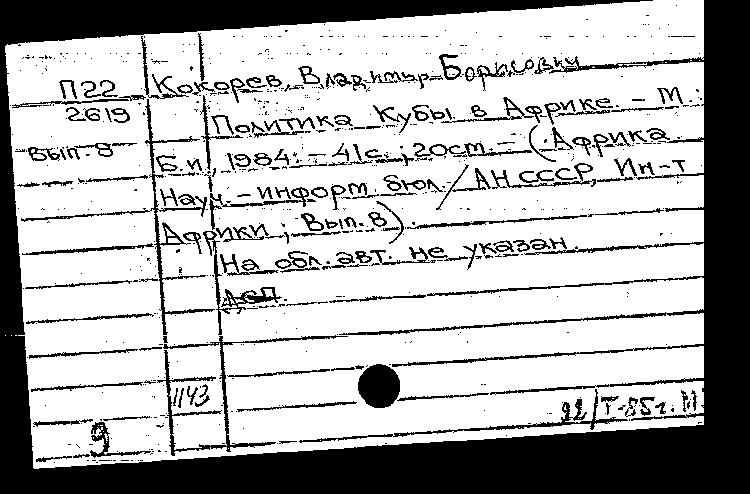 П22 Кокорев, Владимир Борисович
2619 Политика Кубы в Африке. – М.:
Вып. 8 Б.и., 1984. – 41с.; 20см. – (Африка.
Науч.-информ. бюл. / АН СССР, Ин-т
Африки; Вып. 8).
На обл. авт. не указан.
ДСП.
1143
22/I-85г. М
9